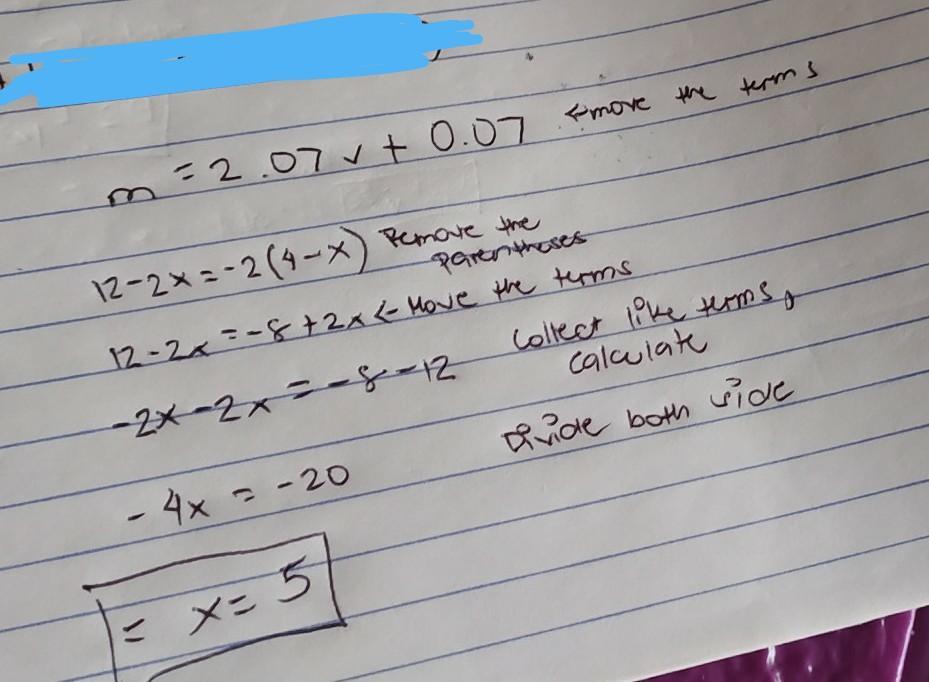 m = 2.07 v + 0.07 ← move the terms
12-2x = -2(4-x) Remove the
Parentheses
12-2x = -8+2x ← Move the terms
-2x-2x = -8-12 Collect like terms,
calculate
Divide both side
-4x = -20
= x = 5